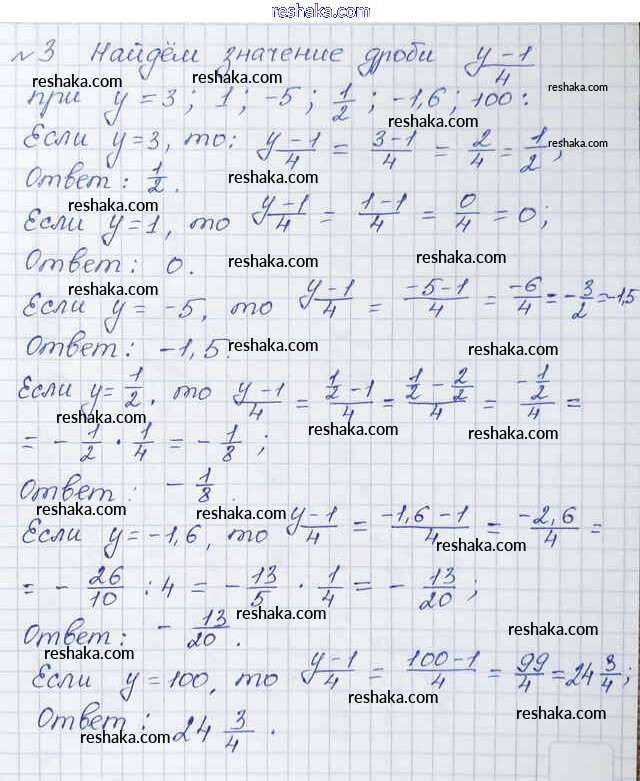 reshaka.com
№3 Найдём значение дроби (y-1)/4
reshaka.com reshaka.com reshaka.com
при y=3; 1; -5; 1/2; -1,6; 100:
reshaka.com
Если y=3, то: (y-1)/4 = (3-1)/4 = 2/4 = 1/2;
reshaka.com reshaka.com
Ответ: 1/2.
reshaka.com reshaka.com
Если y=1, то (y-1)/4 = (1-1)/4 = 0/4 = 0;
Ответ: 0. reshaka.com reshaka.com
Если y=-5, то (y-1)/4 = (-5-1)/4 = -6/4 = -3/2 = -1,5
reshaka.com
Ответ: -1,5. reshaka.com reshaka.com
Если y=1/2, то (y-1)/4 = (1/2-1)/4 = (1/2-2/2)/4 = (-1/2)/4 =
reshaka.com reshaka.com reshaka.com
= -1/2 · 1/4 = -1/8;
Ответ: -1/8.
reshaka.com reshaka.com
Если y=-1,6, то (y-1)/4 = (-1,6-1)/4 = -2,6/4 =
reshaka.com reshaka.com
= -26/10 : 4 = -13/5 · 1/4 = -13/20;
reshaka.com
Ответ: -13/20.
reshaka.com reshaka.com
Если y=100, то (y-1)/4 = (100-1)/4 = 99/4 = 24 3/4;
reshaka.com reshaka.com
Ответ: 24 3/4.
reshaka.com reshaka.com